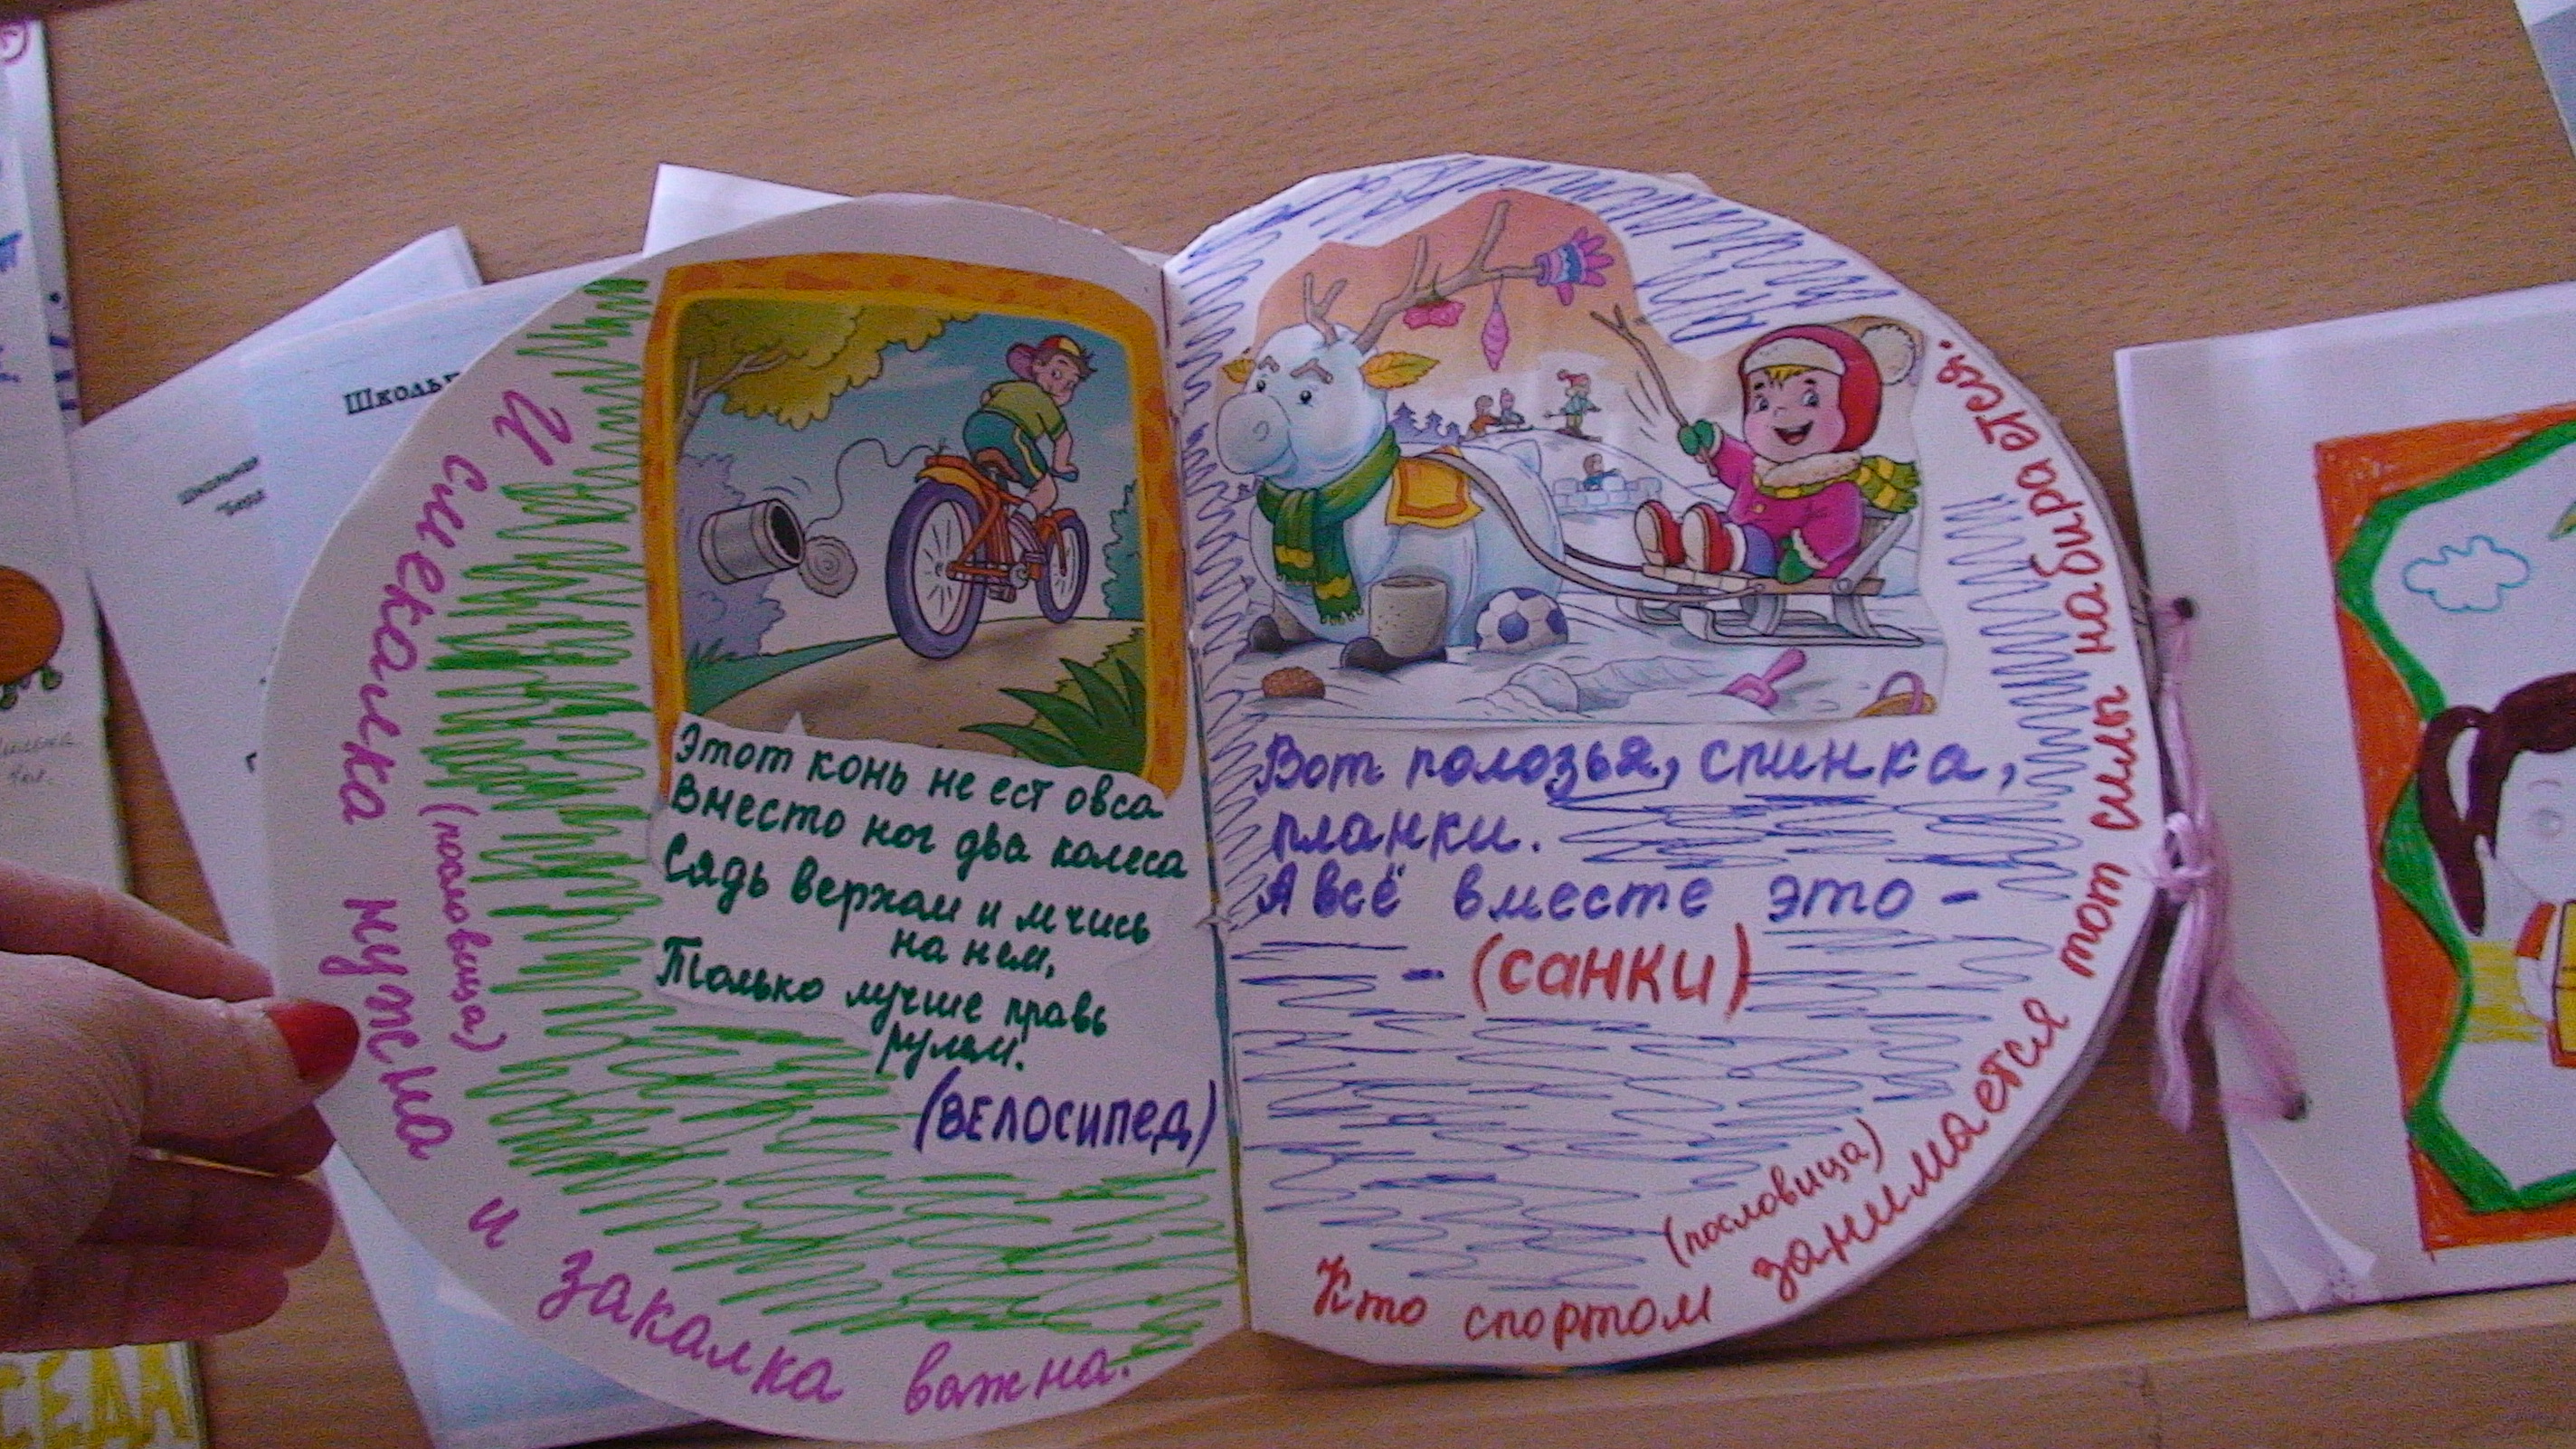 Школьн
школьная
И смекалка нужна и закалка важна.
(пословица)
Этот конь не ест овса
Вместо ног два колеса
Сядь верхом и мчись
на нем,
Только лучше правь
рулем.
(ВЕЛОСИПЕД)
Вот полозья, спинка,
планки.
А всё вместе это -
- (САНКИ)
(пословица)
Кто спортом занимается тот силы набирается.
СЕДА